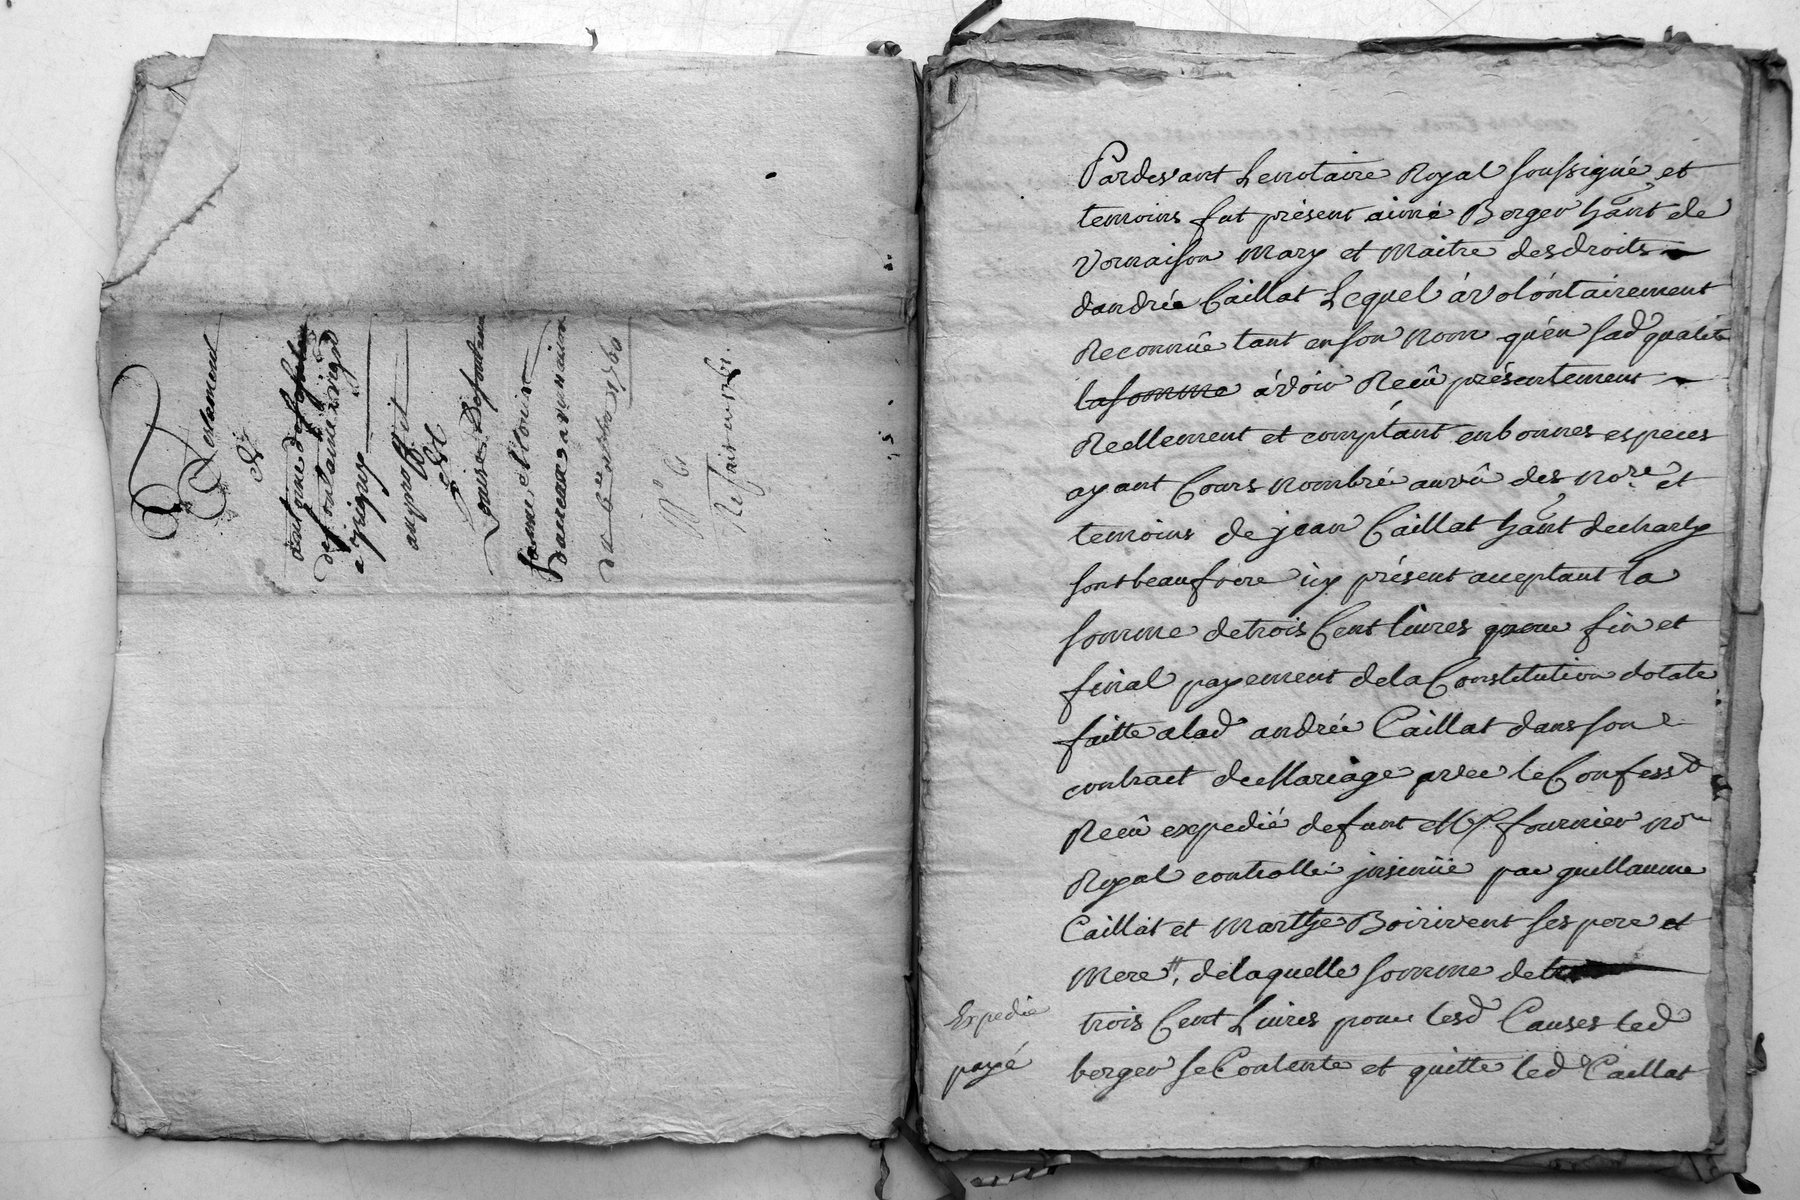 Testament
De
antoine
de fontaine
a
auprofit
De
Louise Defontaine
femme
N° 61
Pardevant Lenotaire Royal soussigné et
temoins fut présent aimé Berger ha̅nt de
Vernaison Mary et Maitre desdroits
dandrée Caillat Lequel à volontairement
Reconnüe tant enson nom quén sad qualité
lasomme àvoir Reçû présentement
Reellement et comptant enbonnes especes
ayant Cours nombrée auvû des nore et
temoins de jean Caillat ha̅nt decharly
sont beaufrere icy présent acceptant la
somme detrois Cent livres pour fin et
final payement dela Constitution dotale
faitte alad andrée Caillat dans son
contract deMariage avec le Confessd
Recû expedié defunt Me fournier nore
Royal controllé jnsinüé par guillaume
Caillat et Marthe Boirivent ses pere et
Mere, delaquelle somme de
trois Cent Livres pour lesd Causes led
berger se Contente et quitte led Caillat
Expedié
payé